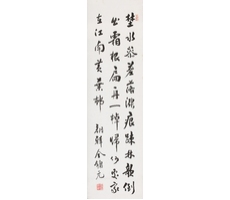 埜水參差落漲痕疎林欹倒
出霜根扁舟一棹歸何處家
在江南黃葉邨
朝鮮金鏞元